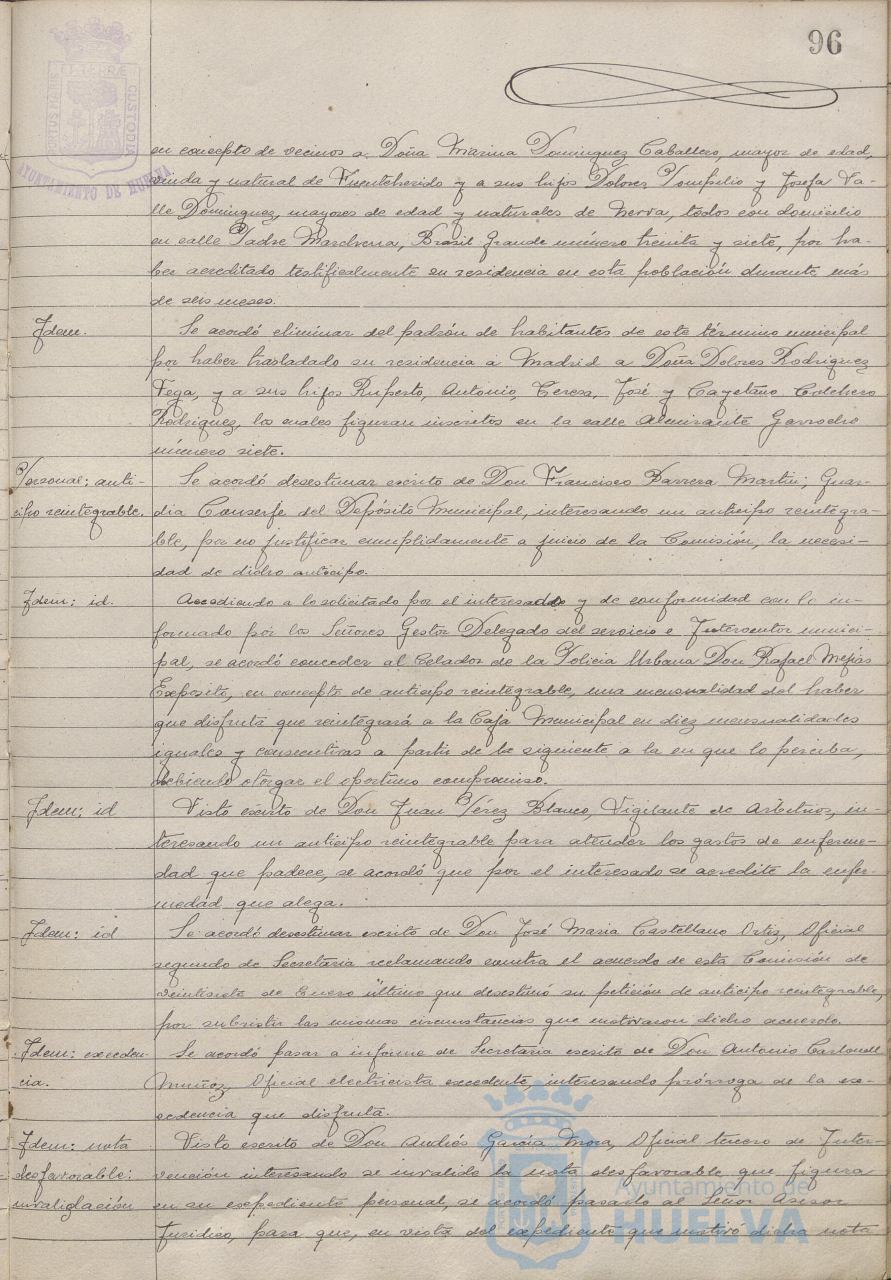 96
PORTUS MARIS ET TERRÆ CUSTODIA
AYUNTAMIENTO DE HUELVA
en concepto de vecinos a Doña Marina Dominguez Caballero, mayor de edad,
viuda y natural de Fuenteherido y a sus hijos Dolores, Pompilio y Josefa Va-
lle Dominguez, mayores de edad y naturales de Nerva, todos con domicilio
en calle Padre Marchena, Brasil Grande número treinta y siete, por ha-
ber acreditado testificalmente su residencia en esta población durante más
de seis meses.
Idem. Se acordó eliminar del padrón de habitantes de este término municipal
por haber trasladado su residencia a Madrid a Doña Dolores Rodriguez
Vega, y a sus hijos Ruperto, Antonio, Teresa, José y Cayetano Colchero
Rodriguez, los cuales figuran inscritos en la calle Almirante Garrocho
número siete.
Personal: anti- Se acordó desestimar escrito de Don Francisco Barrera Martin; Guar-
cipo reintegrable. dia Conserje del Depósito Municipal, interesando un anticipo reintegra-
ble, por no justificar cumplidamente a juicio de la Comisión, la necesi-
dad de dicho anticipo.
Idem: id. Accediendo a lo solicitado por el interesado y de conformidad con lo in-
formado por los Señores Gestor Delegado del servicio e Interventor munici-
pal, se acordó conceder al Celador de la Policia Urbana Don Rafael Mejías
Expósito, en concepto de anticipo reintegrable, una mensualidad del haber
que disfruta que reintegrará a la Caja Municipal en diez mensualidades
iguales y consecutivas a partir de la siguiente a la en que lo perciba,
debiendo otorgar el oportuno compromiso.
Idem: id Visto escrito de Don Juan Pérez Blanco, Vigilante de Arbitrios, in-
teresando un anticipo reintegrable para atender los gastos de enferme-
dad que padece, se acordó que por el interesado se acredite la enfer-
medad que alega.
Idem: id Se acordó desestimar escrito de Don José Maria Castellano Ortiz, Oficial
segundo de Secretaria reclamando contra el acuerdo de esta Comisión de
veintisiete de Enero último que desestimó su petición de anticipo reintegrable,
por subsistir las mismas circunstancias que motivaron dicho acuerdo.
Idem: exceden- Se acordó pasar a informe de Secretaria escrito de Don Antonio Carbonell
cia. Muñoz, Oficial electricista excedente, interesando prórroga de la ex-
cedencia que disfruta.
Idem: nota Visto escrito de Don Andrés García Mora, Oficial tercero de Inter-
desfavorable: vención interesando se invalide la nota desfavorable que figura
invalidación en su expediente personal, se acordó pasarlo al Señor Asesor
Juridico, para que, en vista del expediente que motivó dicha nota
Ayuntamiento de
HUELVA